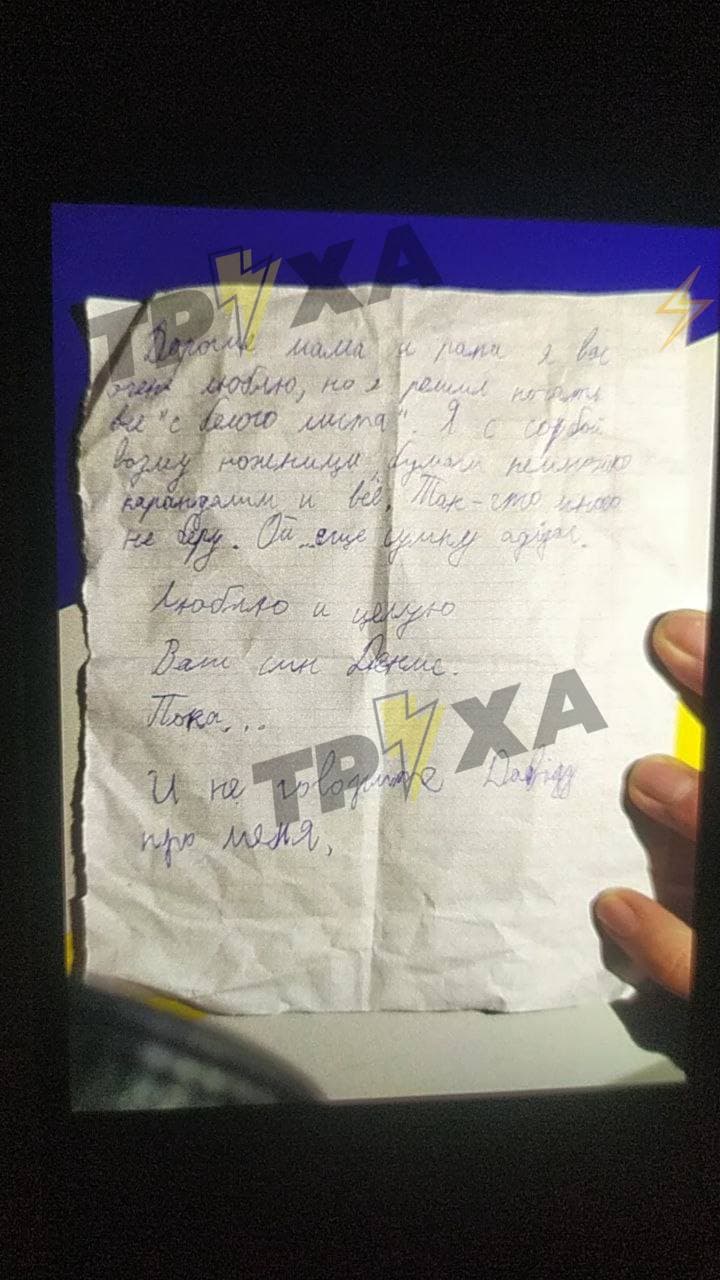 ТРУХА
Дорогие мама и папа я вас
очень люблю, но я решил начать
все "с белого листа". Я с собой
возму ноженици, бумаги немножко
карандашим и всё. Так-что много
не беру. Ой...еще сумку adidas.
Люблю и целую
Ваш син Денис.
Пока...
ТРУХА
И не говорите Давиду
про меня,